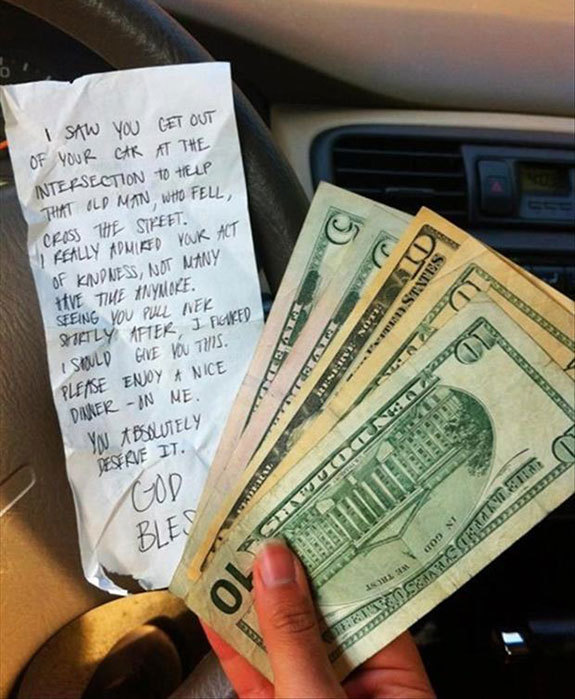 I SAW YOU GET OUT
OF YOUR CAR AT THE
INTERSECTION TO HELP
THAT OLD MAN, WHO FELL,
CROSS THE STREET.
I REALLY ADMIRED YOUR ACT
OF KINDNESS, NOT MANY
HAVE TIME ANYMORE.
SEEING YOU PULL OVER
SHORTLY AFTER, I FIGURED
I SHOULD GIVE YOU THIS.
PLEASE ENJOY A NICE
DINNER - ON ME.
YOU ABSOLUTELY
DESERVE IT.
GOD
BLES
5
5
10
10
10
10
IN GOD
WE TRUST